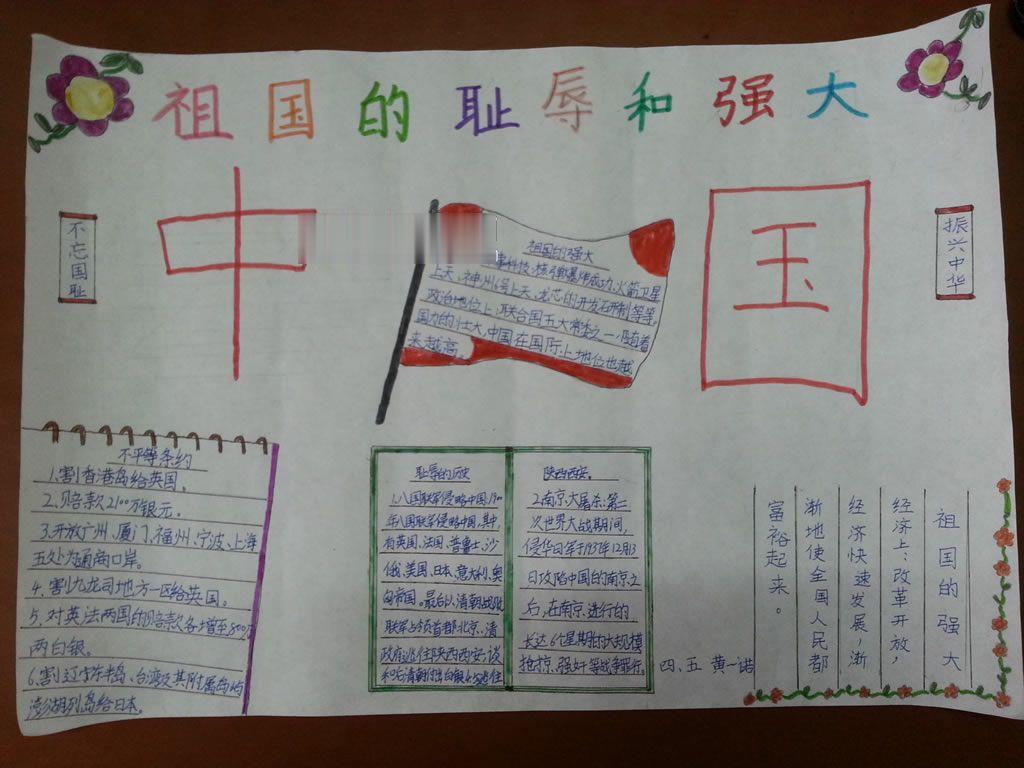 祖国的耻辱和强大
不忘国耻
中
国
振兴中华
祖国的强大
事科技:核弹爆炸成功,火箭卫星
上天,神州6号上天,龙芯的开发研制等等,
政治地位上:联合国五大常委之一,随着
国力的壮大,中国在国际上地位也越
来越高。
不平等条约
1.割香港岛给英国。
2.赔款2100万银元。
3.开放广州、厦门、福州、宁波、上海
五处为通商口岸。
4.割九龙司地方一区给英国。
5.对英、法两国的赔款各增至800万
两白银。
6.割辽东半岛、台湾及其附属岛屿
澎湖列岛给日本。
耻辱的历史
1.八国联军侵略中国:1900
年八国联军侵略中国,其中
有英国、法国、普鲁士、沙
俄、美国、日本、意大利、奥
匈帝国。最后以清朝战败
联军占领首都北京、清
政府逃往陕西西安;谈
陕西西安。
2.南京大屠杀:第二
次世界大战期间,
侵华日军于1937年12月13
日攻陷中国的南京之
后,在南京进行的
长达6个星期的大规模
抢掠、强奸等战争罪行。
四、五 黄一诺
祖国的强大
经济上:改革开放,
经济快速发展,渐
渐地使全国人民都
富裕起来。